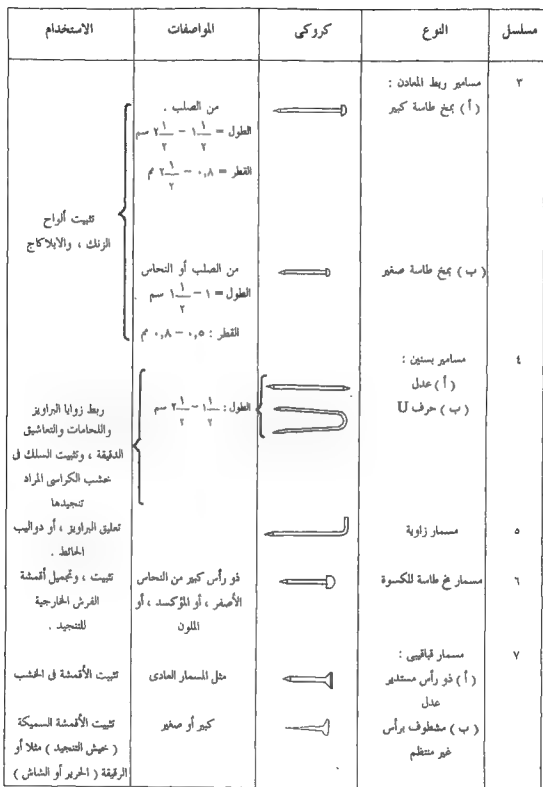 مسلسل النوع كروكى المواصفات الاستخدام
٣ مسامير ربط المعادن :
( أ ) بمخ طاسة كبير
من الصلب .
الطول = ١ ١/٢ – ٢ ١/٢ سم
القطر = ٠,٨ – ٢ ١/٢ م
تثبيت ألواح
الزنك ، والابلاكاج
( ب ) بمخ طاسة صغير
من الصلب أو النحاس
الطول = ١ – ١ ١/٢ سم .
القطر : ٠,٥ – ٠,٨ مم
٤ مسامير بسنين :
( أ ) عدل
( ب ) حرف U
الطول : ١ ١/٢ – ٢ ١/٢ سم
ربط زوايا البراويز
واللحامات والتعاشيق
الدقيقة ، وتثبيت السلك فى
خشب الكراسى المراد
تنجيدها
٥ مسمار زاوية
تعليق البراويز ، أو دواليب
الحائط .
٦ مسمار مخ طاسة للكسوة
ذو رأس كبير من النحاس
الأصفر ، أو المؤكسد ، أو
الملون
تثبيت ، وتجميل أقمشة
الفرش الخارجية
للتنجيد .
٧ مسمار قباقيبى :
( أ ) ذو رأس مستدير
عدل
مثل المسمار العادى
تثبيت الأقمشة فى الخشب
( ب ) مشطوف برأس
غير منتظم
كبير أو صغير
تثبيت الأقمشة السميكة
( خيش التنجيد ) مثلا أو
الرقيقة ( الحرير أو الشاش )